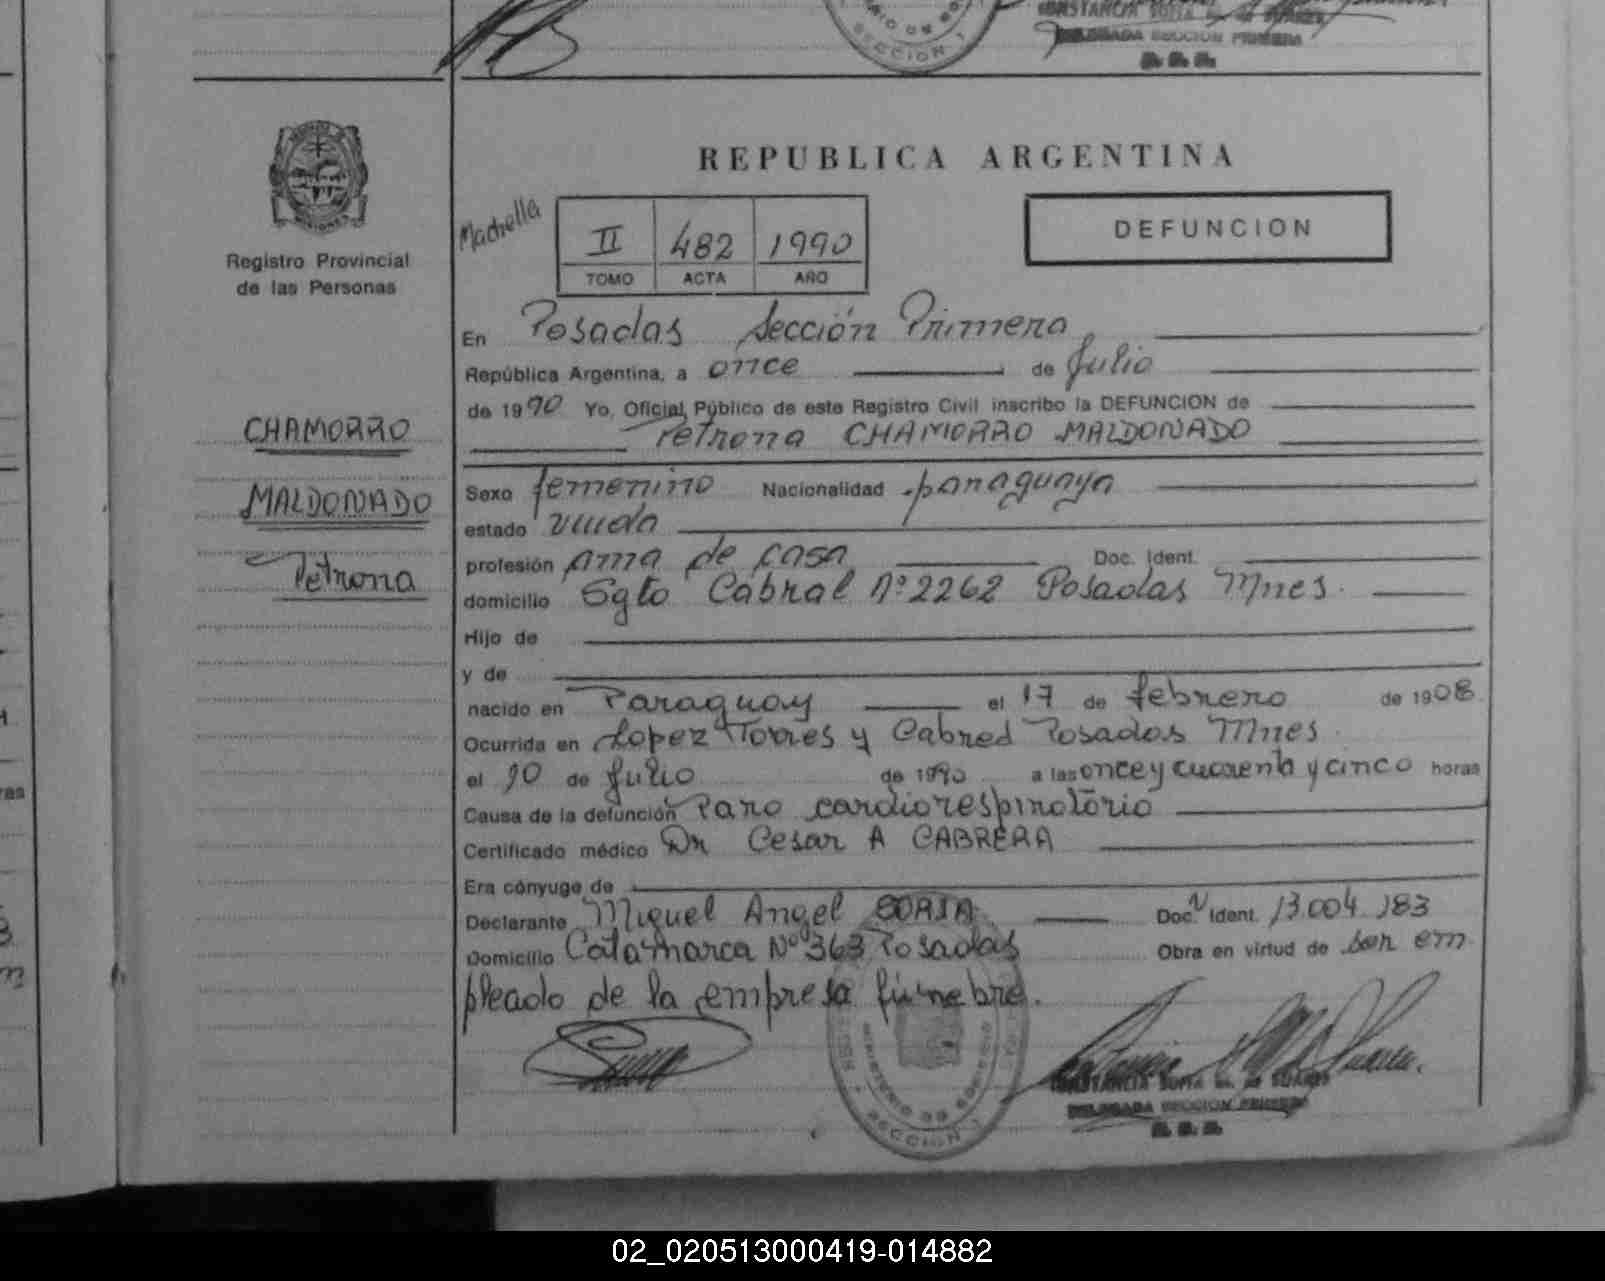 SECCION 1
DELEGADA SECCION PRIMERA
REPUBLICA ARGENTINA
Registro Provincial
de las Personas
Machella
II 482 1990
TOMO ACTA AÑO
DEFUNCION
CHAMORRO
MALDONADO
Petrona
En Posadas Sección Primera
República Argentina, a once de Julio
de 1990 Yo, Oficial Público de este Registro Civil inscribo la DEFUNCION de
Petrona CHAMORRO MALDONADO
Sexo femenino Nacionalidad paraguaya
estado viuda
profesión ama de casa Doc. Ident.
domicilio Sgto Cabral Nº 2262 Posadas Mnes.
Hijo de
y de
nacido en Paraguay el 17 de febrero de 1908
Ocurrida en Lopez Torres y Cabred Posadas Mnes
el 10 de Julio de 1990 a las once y cuarenta y cinco horas
Causa de la defunción Paro cardiorespiratorio
Certificado médico Dr Cesar A CABRERA
Era cónyuge de
Declarante Miguel Angel SORIA Doc. Ident. 13.004.183
Domicilio Catamarca Nº 363 Posadas Obra en virtud de ser em
pleado de la empresa fúnebre.
CONSTANCIA SOFIA M. de SUAREZ
DELEGADA SECCION PRIMERA
SECCION 1
02_020513000419-014882